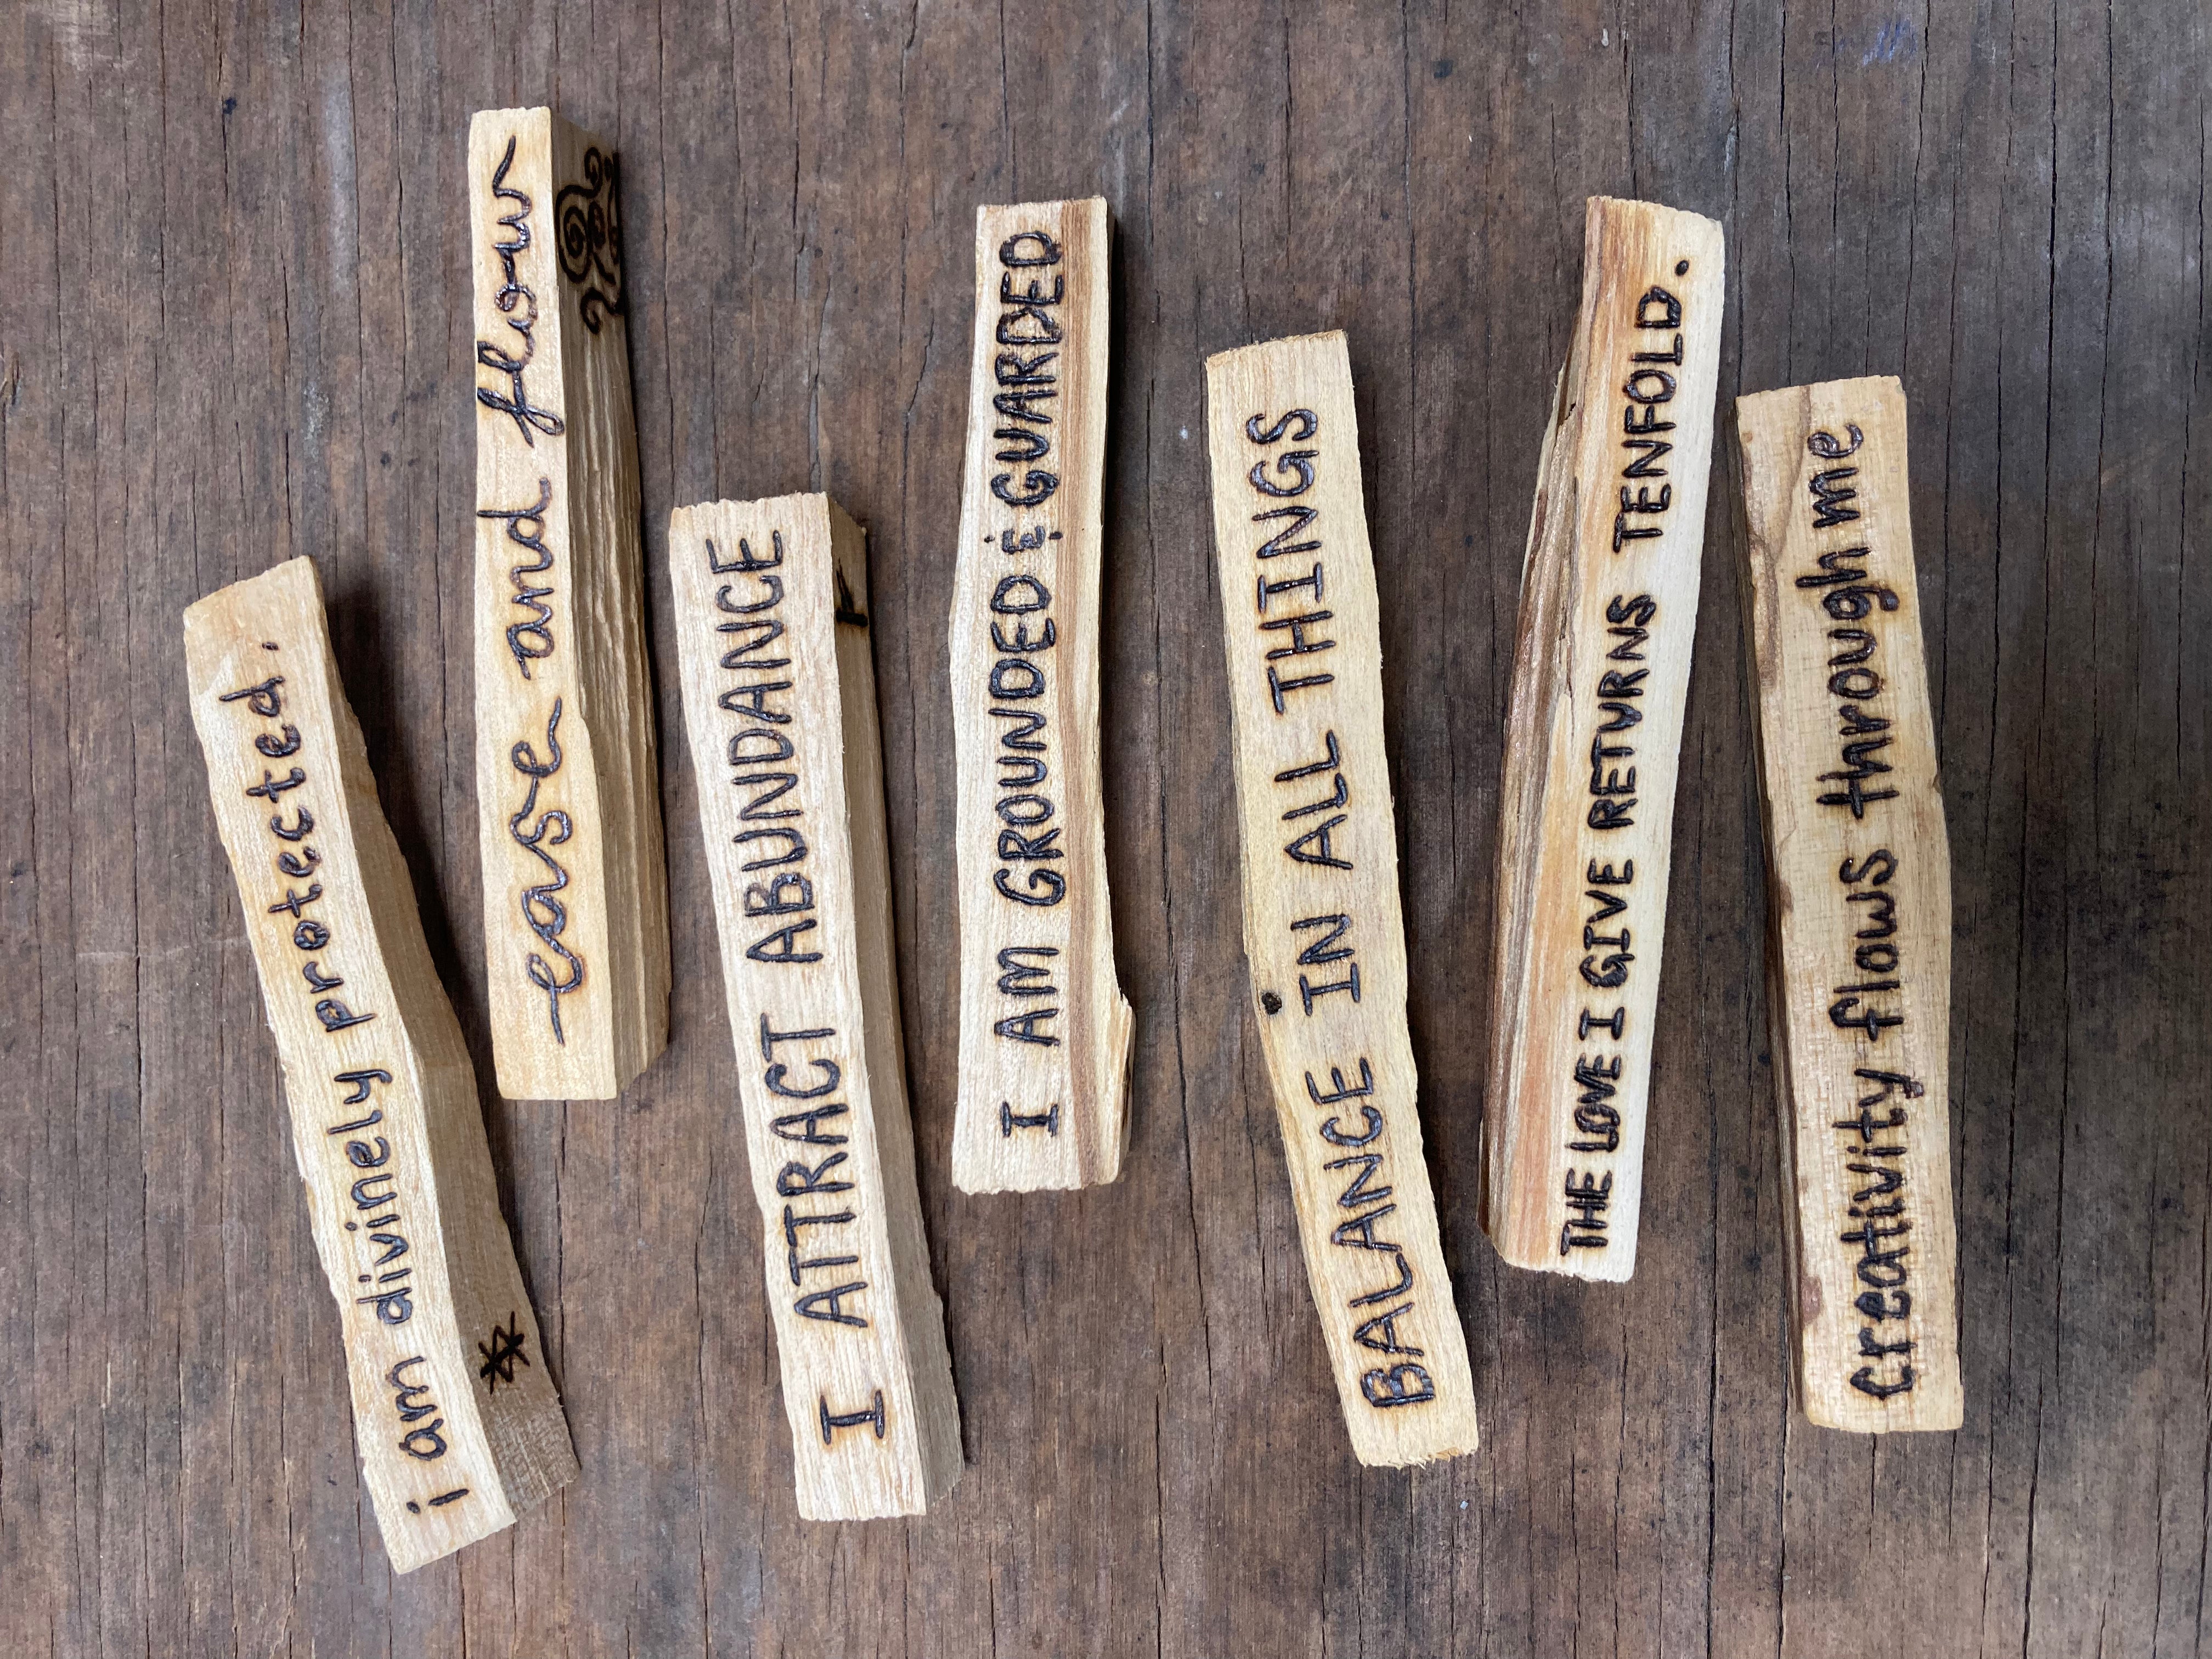 i am divinely protected.
ease and flow
I ATTRACT ABUNDANCE
I AM GROUNDED & GUARDED
BALANCE IN ALL THINGS
THE LOVE I GIVE RETURNS TENFOLD.
creativity flows through me